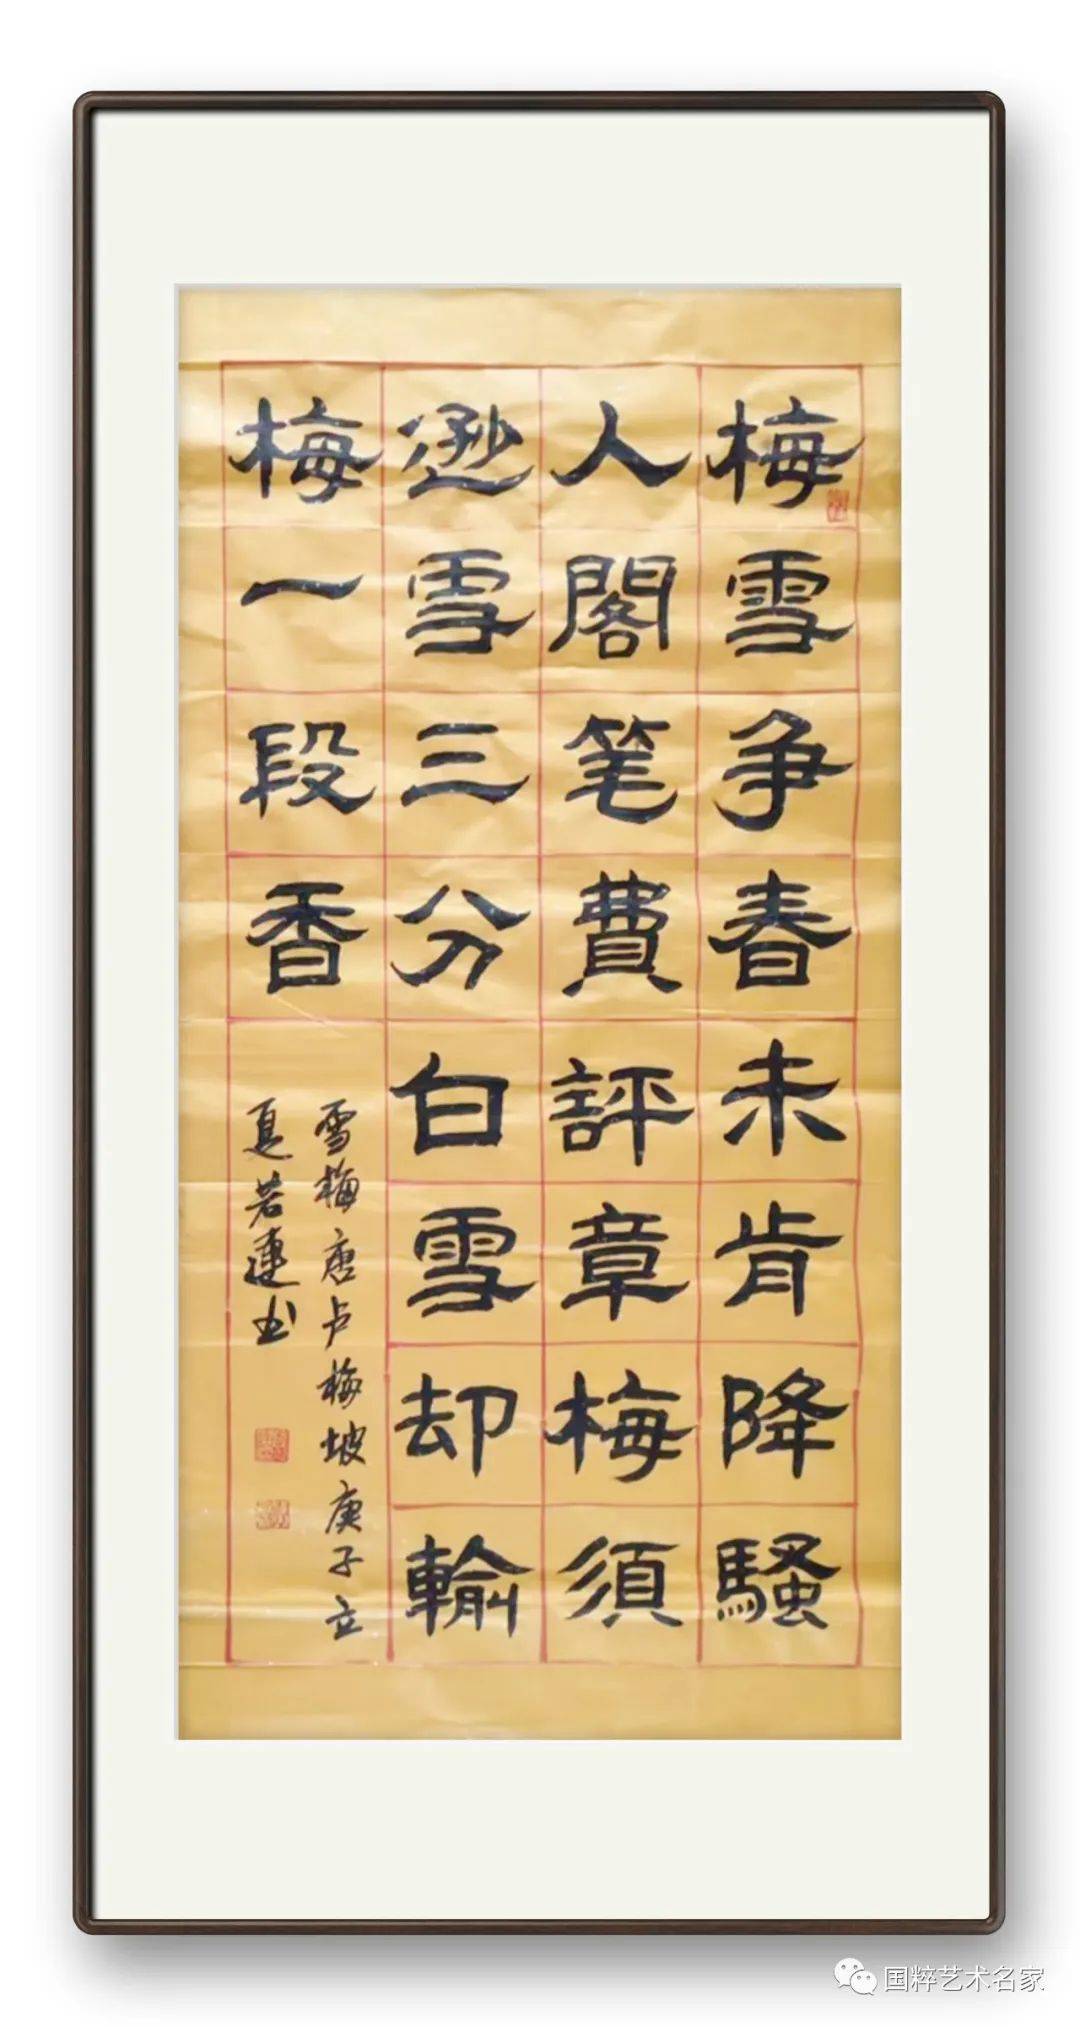 梅雪争春未肯降騷
人閣笔費評章梅須
遜雪三分白雪却輸
梅一段香
雪梅唐卢梅坡庚子立
夏若連书
国粹艺术名家